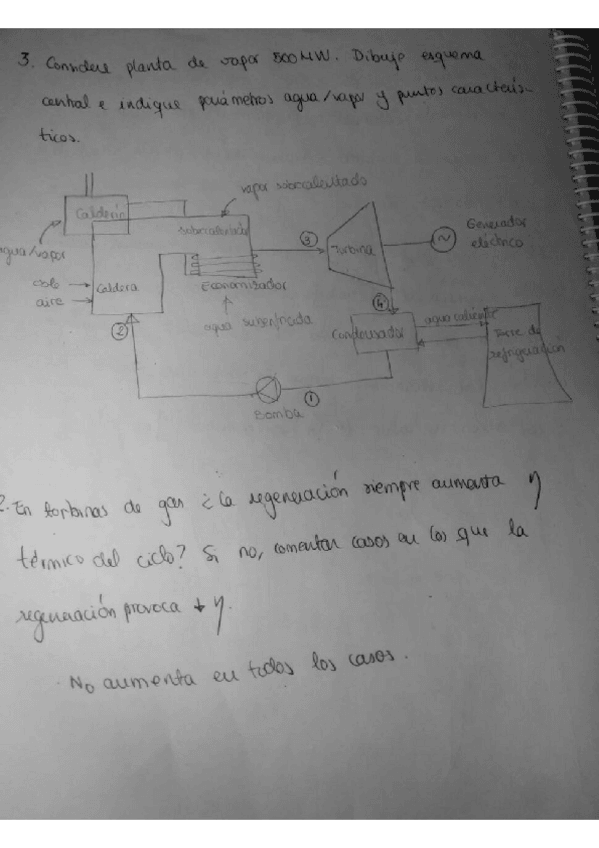 3. Considere planta de vapor 500 MW. Dibuje esquema
central e indique parámetros agua/vapor y puntos caracterís-
ticos.
vapor sobrecalentado
Calderín
Sobrecalentador
Generador
eléctrico
agua/vapor
3
Turbina
comb
aire
Caldera
Economizador
4
agua subenfriada
Condensador
agua caliente
Torre de
refrigeración
2
1
Bomba
2. En turbinas de gas ¿la regeneración siempre aumenta η
térmico del ciclo? Si no, comentar casos en los que la
regeneración provoca ↓ η.
· No aumenta en todos los casos.